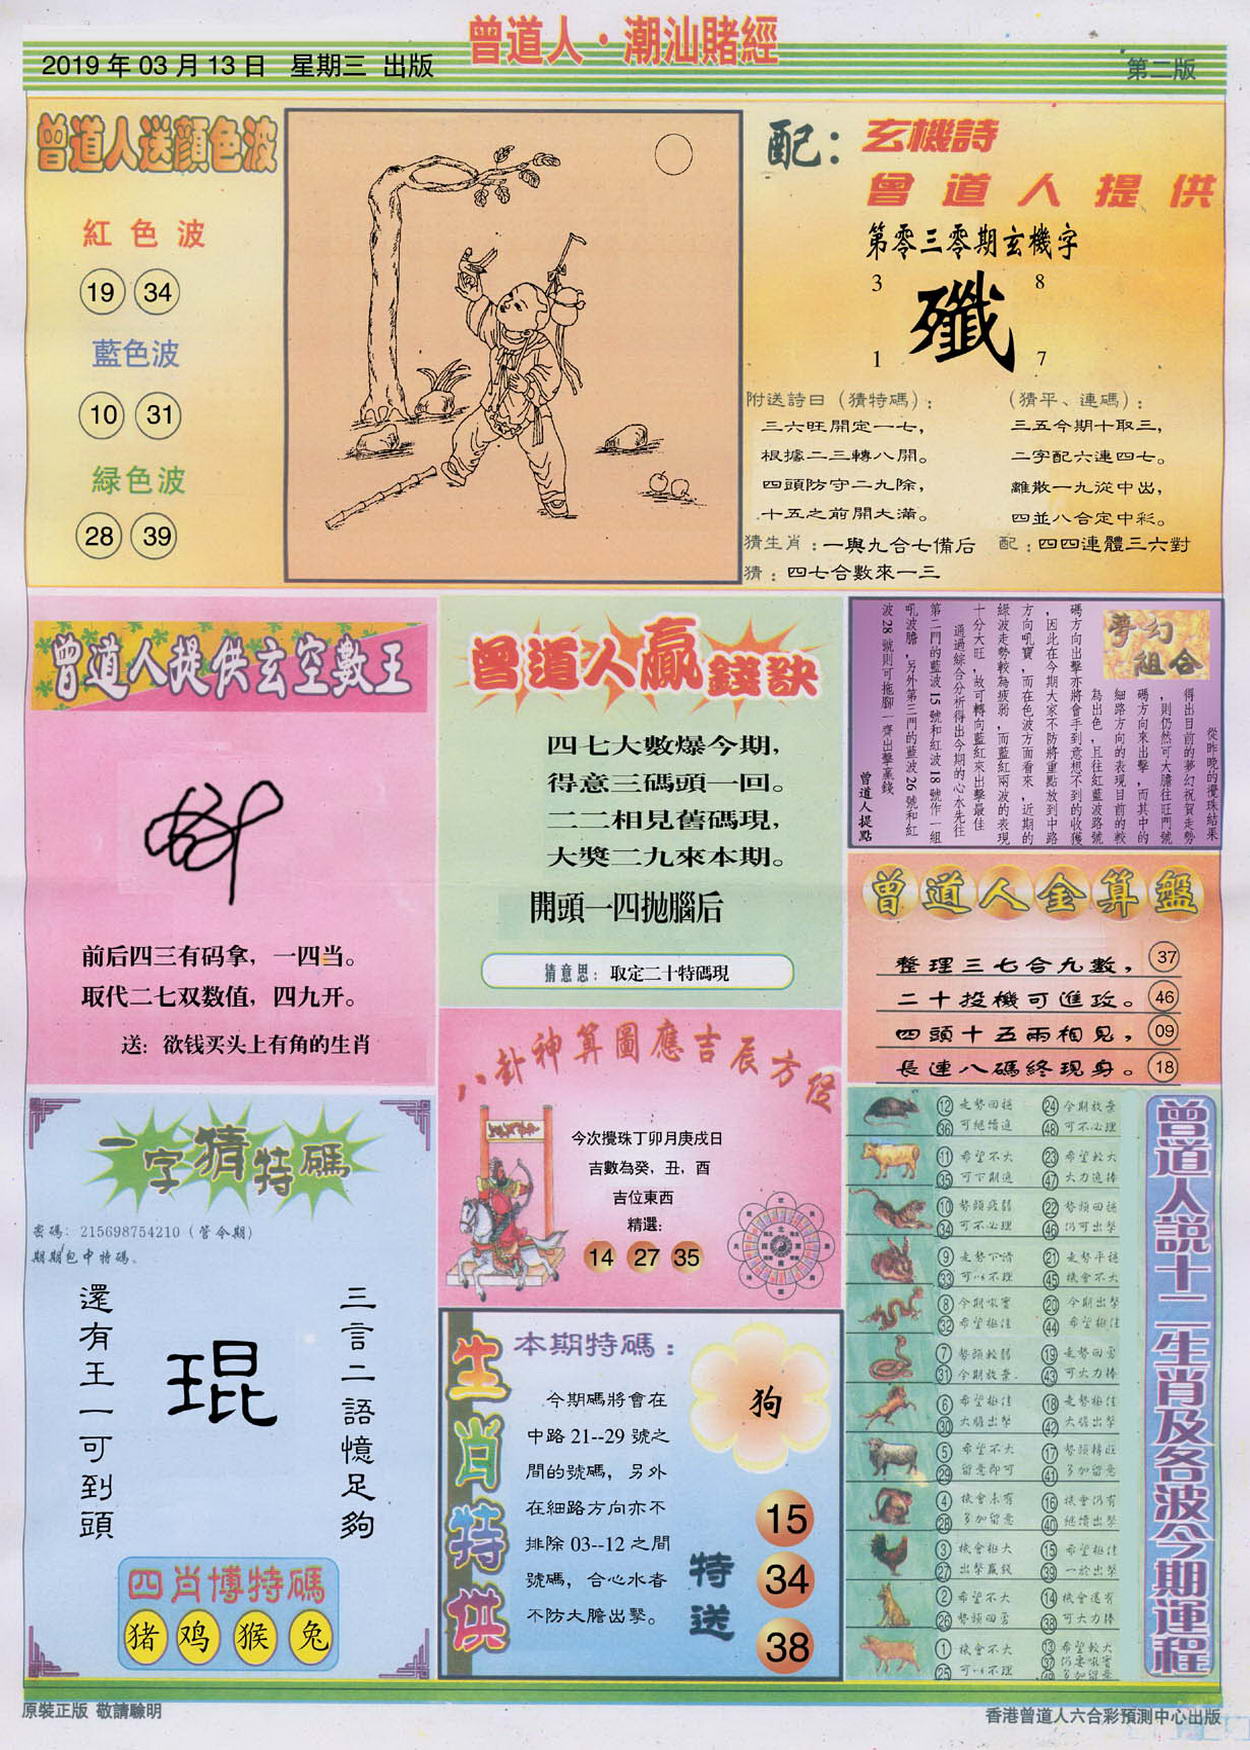 曾道人·潮汕賭經
2019 年 03 月 13 日 星期三 出版
第二版
曾道人送顔色波
紅色波
19 34
藍色波
10 31
緑色波
28 39
配：玄機詩
曾道人提供
第零三零期玄機字
3 8
殲
1 7
附送詩曰（猜特碼）：
三六旺開定一七，
根據二三轉八開。
四頭防守二九除，
十五之前開大滿。
（猜平、連碼）：
三五今期十取三，
二字配六連四七。
離散一九從中出，
四並八合定中彩。
猜生肖：一與九合七備后
配：四四連體三六對
猜：四七合數來一三
曾道人提供玄空數王
前后四三有码拿，一四当。
取代二七双数值，四九开。
送：欲钱买头上有角的生肖
曾道人贏錢訣
四七大數爆今期，
得意三碼頭一回。
二二相見舊碼現，
大獎二九來本期。
開頭一四拋腦后
猜意思：取定二十特碼現
夢幻組合
從昨晚的攪珠結果
得出目前的夢幻祝賀走勢
，則仍然可大膽往旺門號
碼方向來出擊，而其中的
細路方向的表現目前的較
為出色，且往紅藍波路號
碼方向出擊亦將會手到意想不到的收獲
，因此在今期大家不防將重點放到中路
方向吼寶，而在色波方面看來，近期的
綠波走勢較為疲弱，而藍紅兩波的表現
十分大旺，故可轉向藍紅來出擊最佳
通過綜合分析得出今期的心水先往
第二門的藍波 15 號和紅波 18 號作一組
吼波膽，另外第三門的藍波 26 號和紅
波 28 號則可拖腳一齊出擊贏錢
曾道人提點
曾道人金算盤
整理三七合九數， 37
二十投機可進攻。 46
四頭十五兩相見， 09
長連八碼終現身。 18
八卦神算圖應吉辰方位
今次攪珠丁卯月庚戌日
吉數為癸，丑，酉
吉位東西
精選：
14 27 35
一字猜特碼
密碼：215698754210（管令期）
期期包中特碼。
三言二語憶足夠
琨
還有王一可到頭
四肖博特碼
猪 鸡 猴 兔
生肖特供
本期特碼：
今期碼將會在
中路 21--29 號之
間的號碼，另外
在細路方向亦不
排除 03--12 之間
號碼，合心水者
不防大膽出擊。
狗
特送
15
34
38
曾道人説十二生肖及各波今期運程
12 走勢回穩 24 今期放棄
36 可繼續追 48 可不必理
11 希望不大 23 希望較大
35 可下剔追 47 大力追捧
10 勢頭疲弱 22 勢頭回穩
34 可不必理 46 仍可出擊
9 走勢下滑 21 走勢平穩
33 可以不理 45 機會不大
8 今期吼寶 20 今期出擊
32 希望極佳 44 希望極佳
7 勢頭較弱 19 走勢回勇
31 今期放棄 43 可大力捧
6 希望極佳 18 走勢極佳
30 大膽出擊 42 大膽出擊
5 希望不大 17 勢頭轉旺
29 留意即可 41 多加留意
4 機會未有 16 機會仍有
28 多加留意 40 繼續出擊
3 機會極大 15 希望極佳
27 出擊贏錢 39 一於出擊
2 希望不大 14 機會還有
26 勢頭回勇 38 可大力捧
1 機會不大 13 希望較大
25 可以不理 37 仍要吼實
49 多加留意
原裝正版 敬請驗明
香港曾道人六合彩預測中心出版